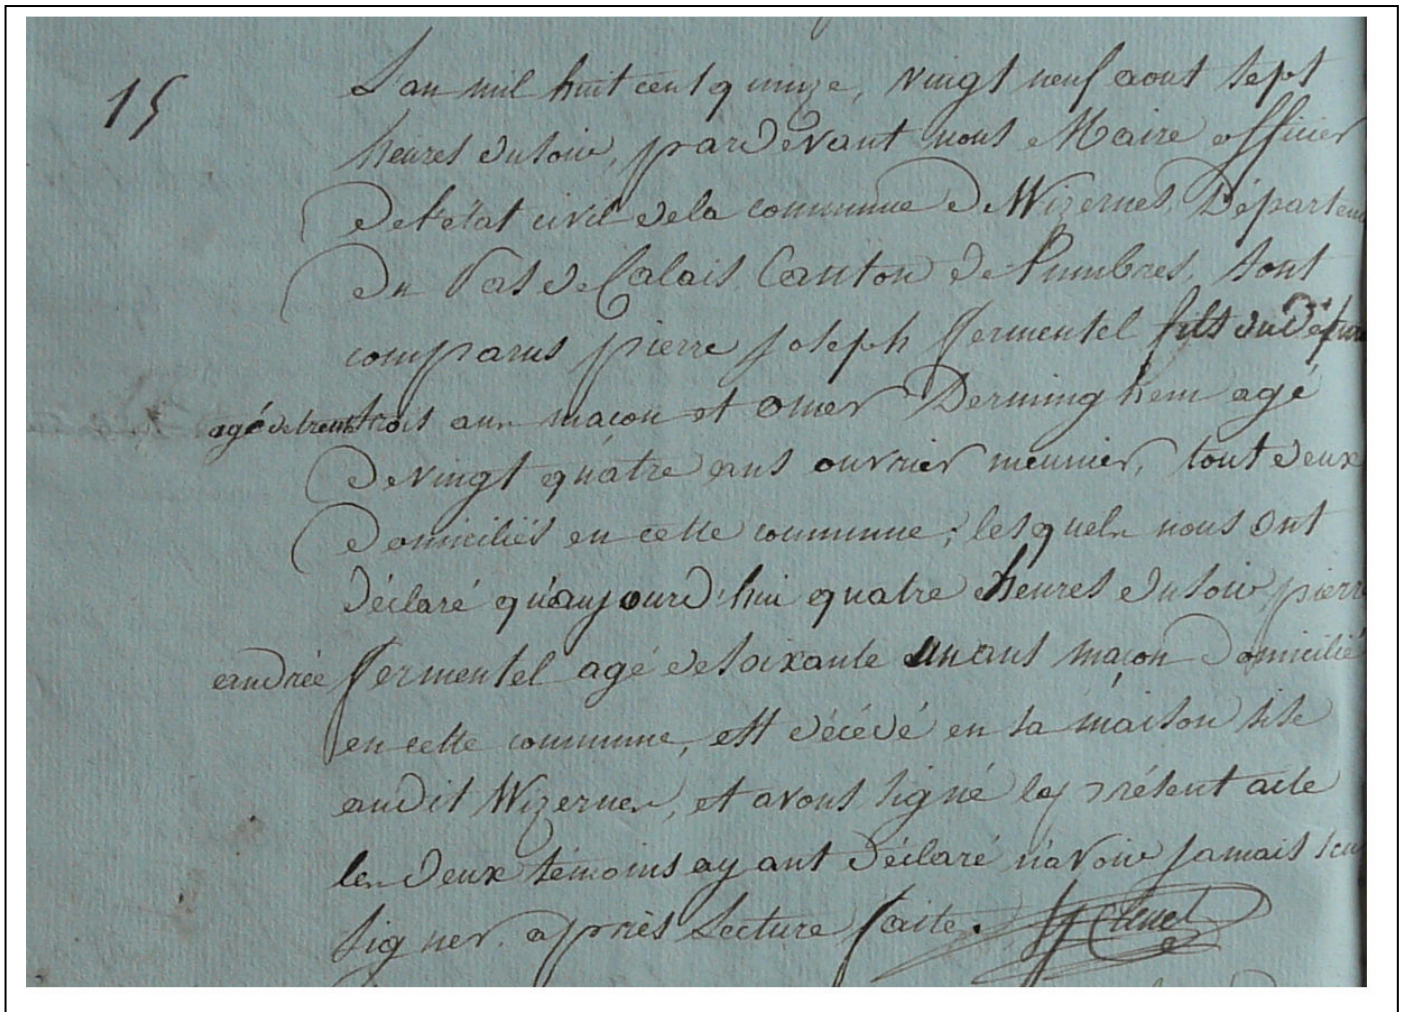 15
L'an mil huit cent quinze, vingt neuf aout sept
heures du soir, pardevant nous Maire officier
de l'état civil de la commune de Wizernes, Départem
du Pas de Calais Canton de Lumbres, sont
comparus pierre joseph fermentel fils du défun
agé de trente trois ans maçon et omer Derminghem agé
de vingt quatre ans ouvrier meunier, tout deux
domiciliés en cette commune; lesquels nous ont
déclaré qu'aujourd'hui quatre heures du soir, pierre
andrée fermentel agé de soixante un ans maçon domicilié
en cette commune, est décédé en sa maison sise
audit Wizernes, et avons signé le présent acte
les deux témoins ayant déclaré n'avoir jamais scu
signer. après Lecture faite.